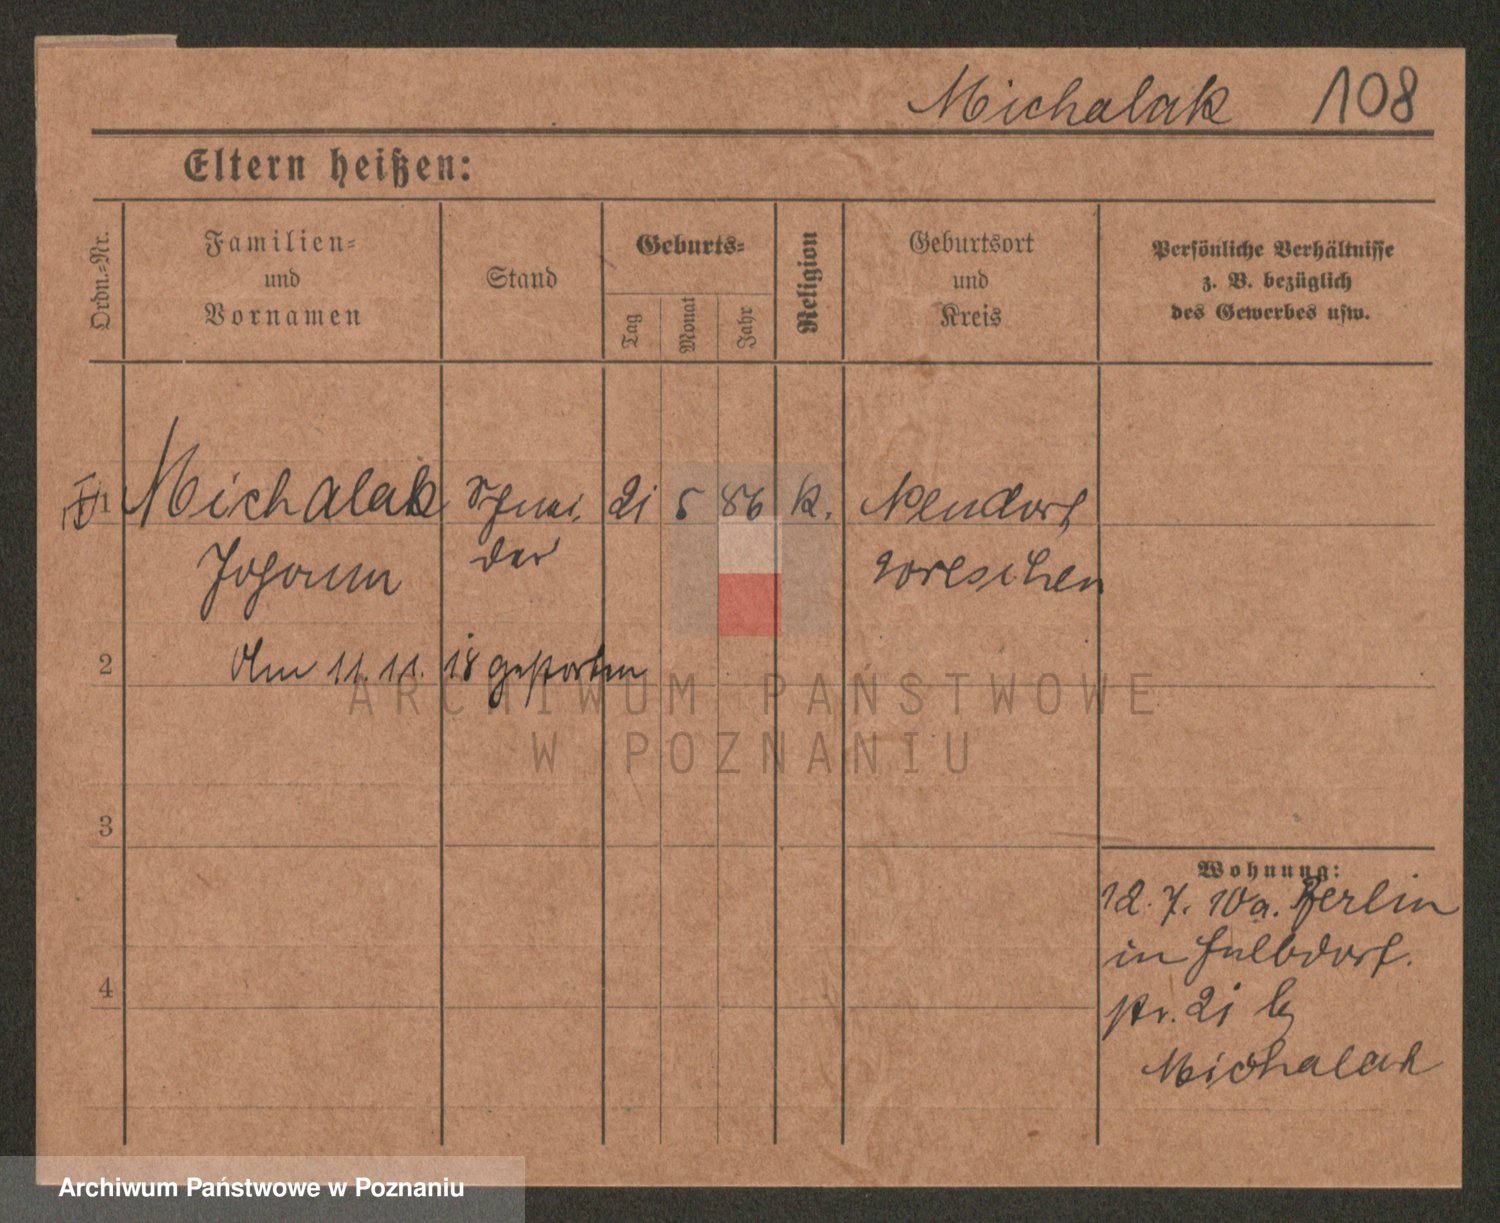 Michalak 108
Eltern heißen:
Ordn.=Nr.
Familien=
und
Vornamen
Stand
Geburts=
Tag
Monat
Jahr
Religion
Geburtsort
und
Kreis
Persönliche Verhältnisse
z. B. bezüglich
des Gewerbes usw.
1 Michalak Schnei. 21 5 86 K. Neudorf
Johann der Wreschen
2 Am 11. 11. 18 gestorben
ARCHIWUM PAŃSTWOWE
W POZNANIU
3
Wohnung:
12. 7. 10 a. Berlin
in
4
str. 21 b
Michalak
Archiwum Państwowe w Poznaniu